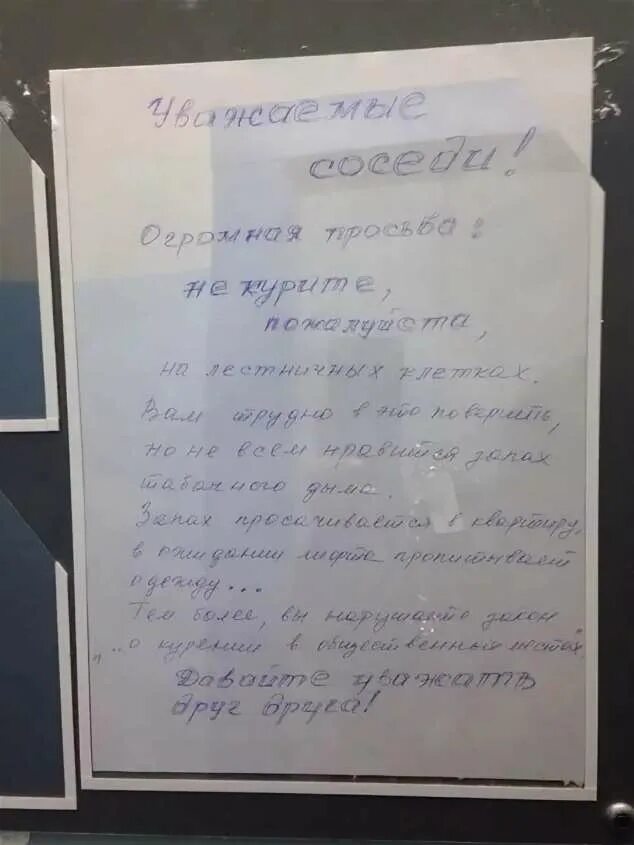 Уважаемые
соседи!
Огромная просьба:
не курите,
пожалуйста,
на лестничных клетках.
Вам трудно в это поверить,
но не всем нравится запах
табачного дыма.
Запах просачивается в квартиру,
в ожидании лифта пропитывает
одежду...
Тем более, вы нарушаете закон
"..о курении в общественных местах"
Давайте уважать
друг друга!